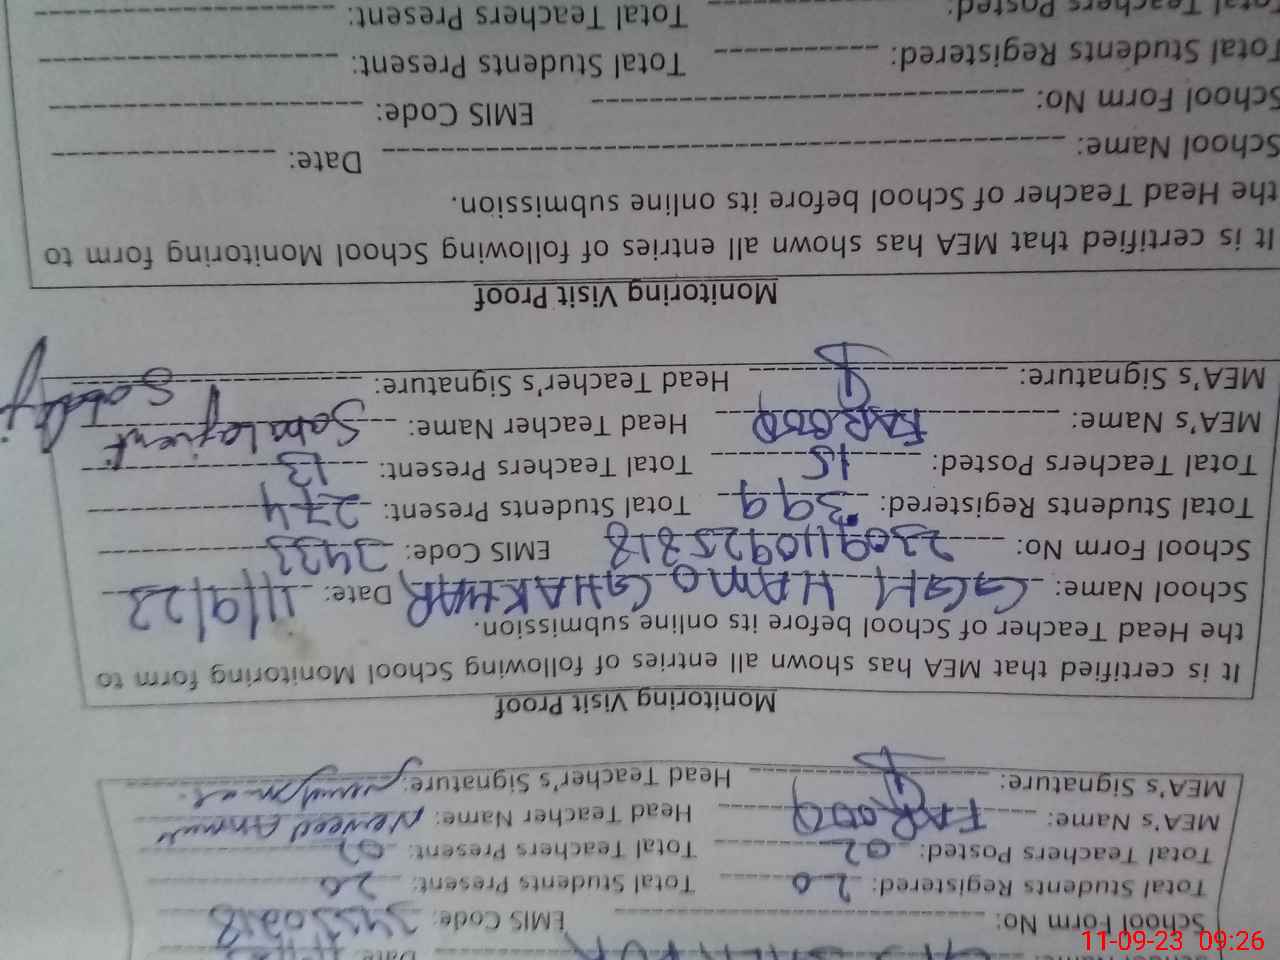 School Form No: EMIS Code:
Total Students Registered: 20 Total Students Present: 20
Total Teachers Posted: 02 Total Teachers Present: 02
MEA's Name: FAROOQ Head Teacher Name:
MEA's Signature: Head Teacher's Signature:
Monitoring Visit Proof
It is certified that MEA has shown all entries of following School Monitoring form to
the Head Teacher of School before its online submission.
School Name: GGH HAMO GHAKHAR Date: 11/9/23
School Form No: 2309110925818 EMIS Code: 3433
Total Students Registered: 399 Total Students Present: 274
Total Teachers Posted: 15 Total Teachers Present: 13
MEA's Name: FAROOQ Head Teacher Name:
MEA's Signature: Head Teacher's Signature:
Monitoring Visit Proof
It is certified that MEA has shown all entries of following School Monitoring form to
the Head Teacher of School before its online submission.
School Name: Date:
School Form No: EMIS Code:
Total Students Registered: Total Students Present:
Total Teachers Posted: Total Teachers Present:
11-09-23 09:26